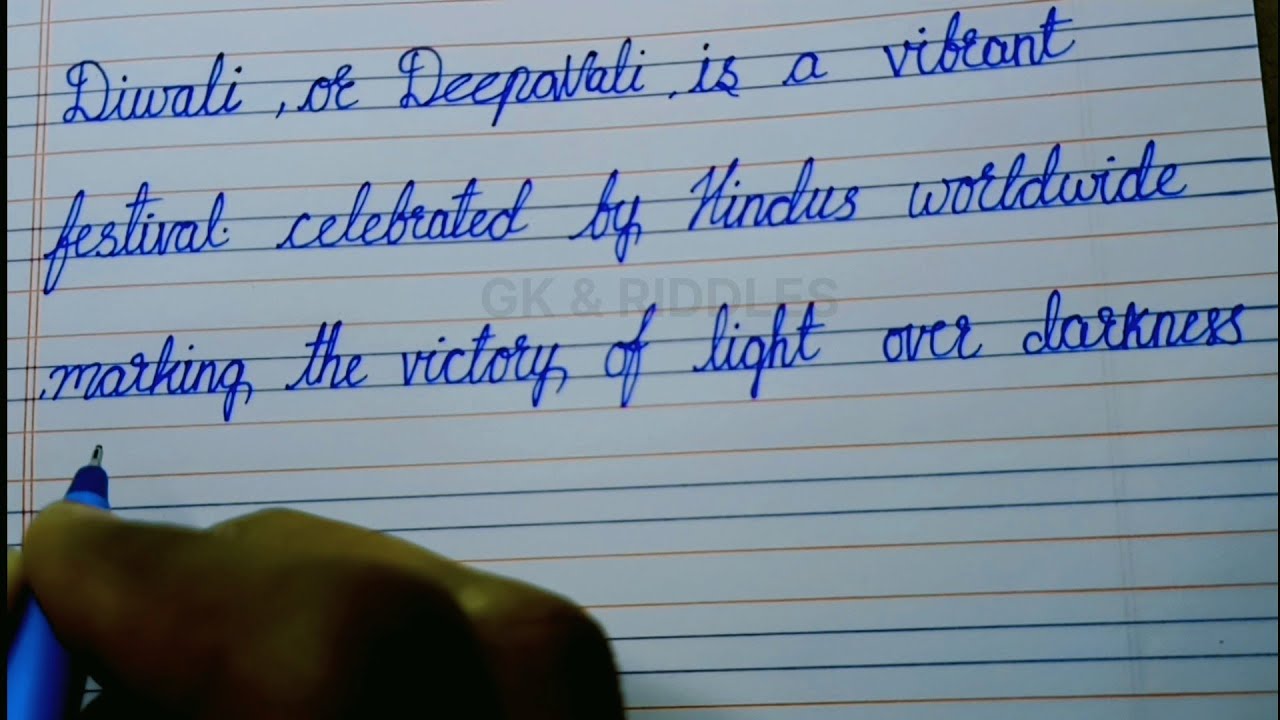 Diwali, or Deepavali, is a vibrant
festival celebrated by Hindus worldwide
GK & RIDDLES
marking the victory of light over darkness